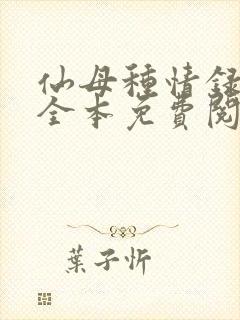 仙母種情録
全本免費閱
葉子忻